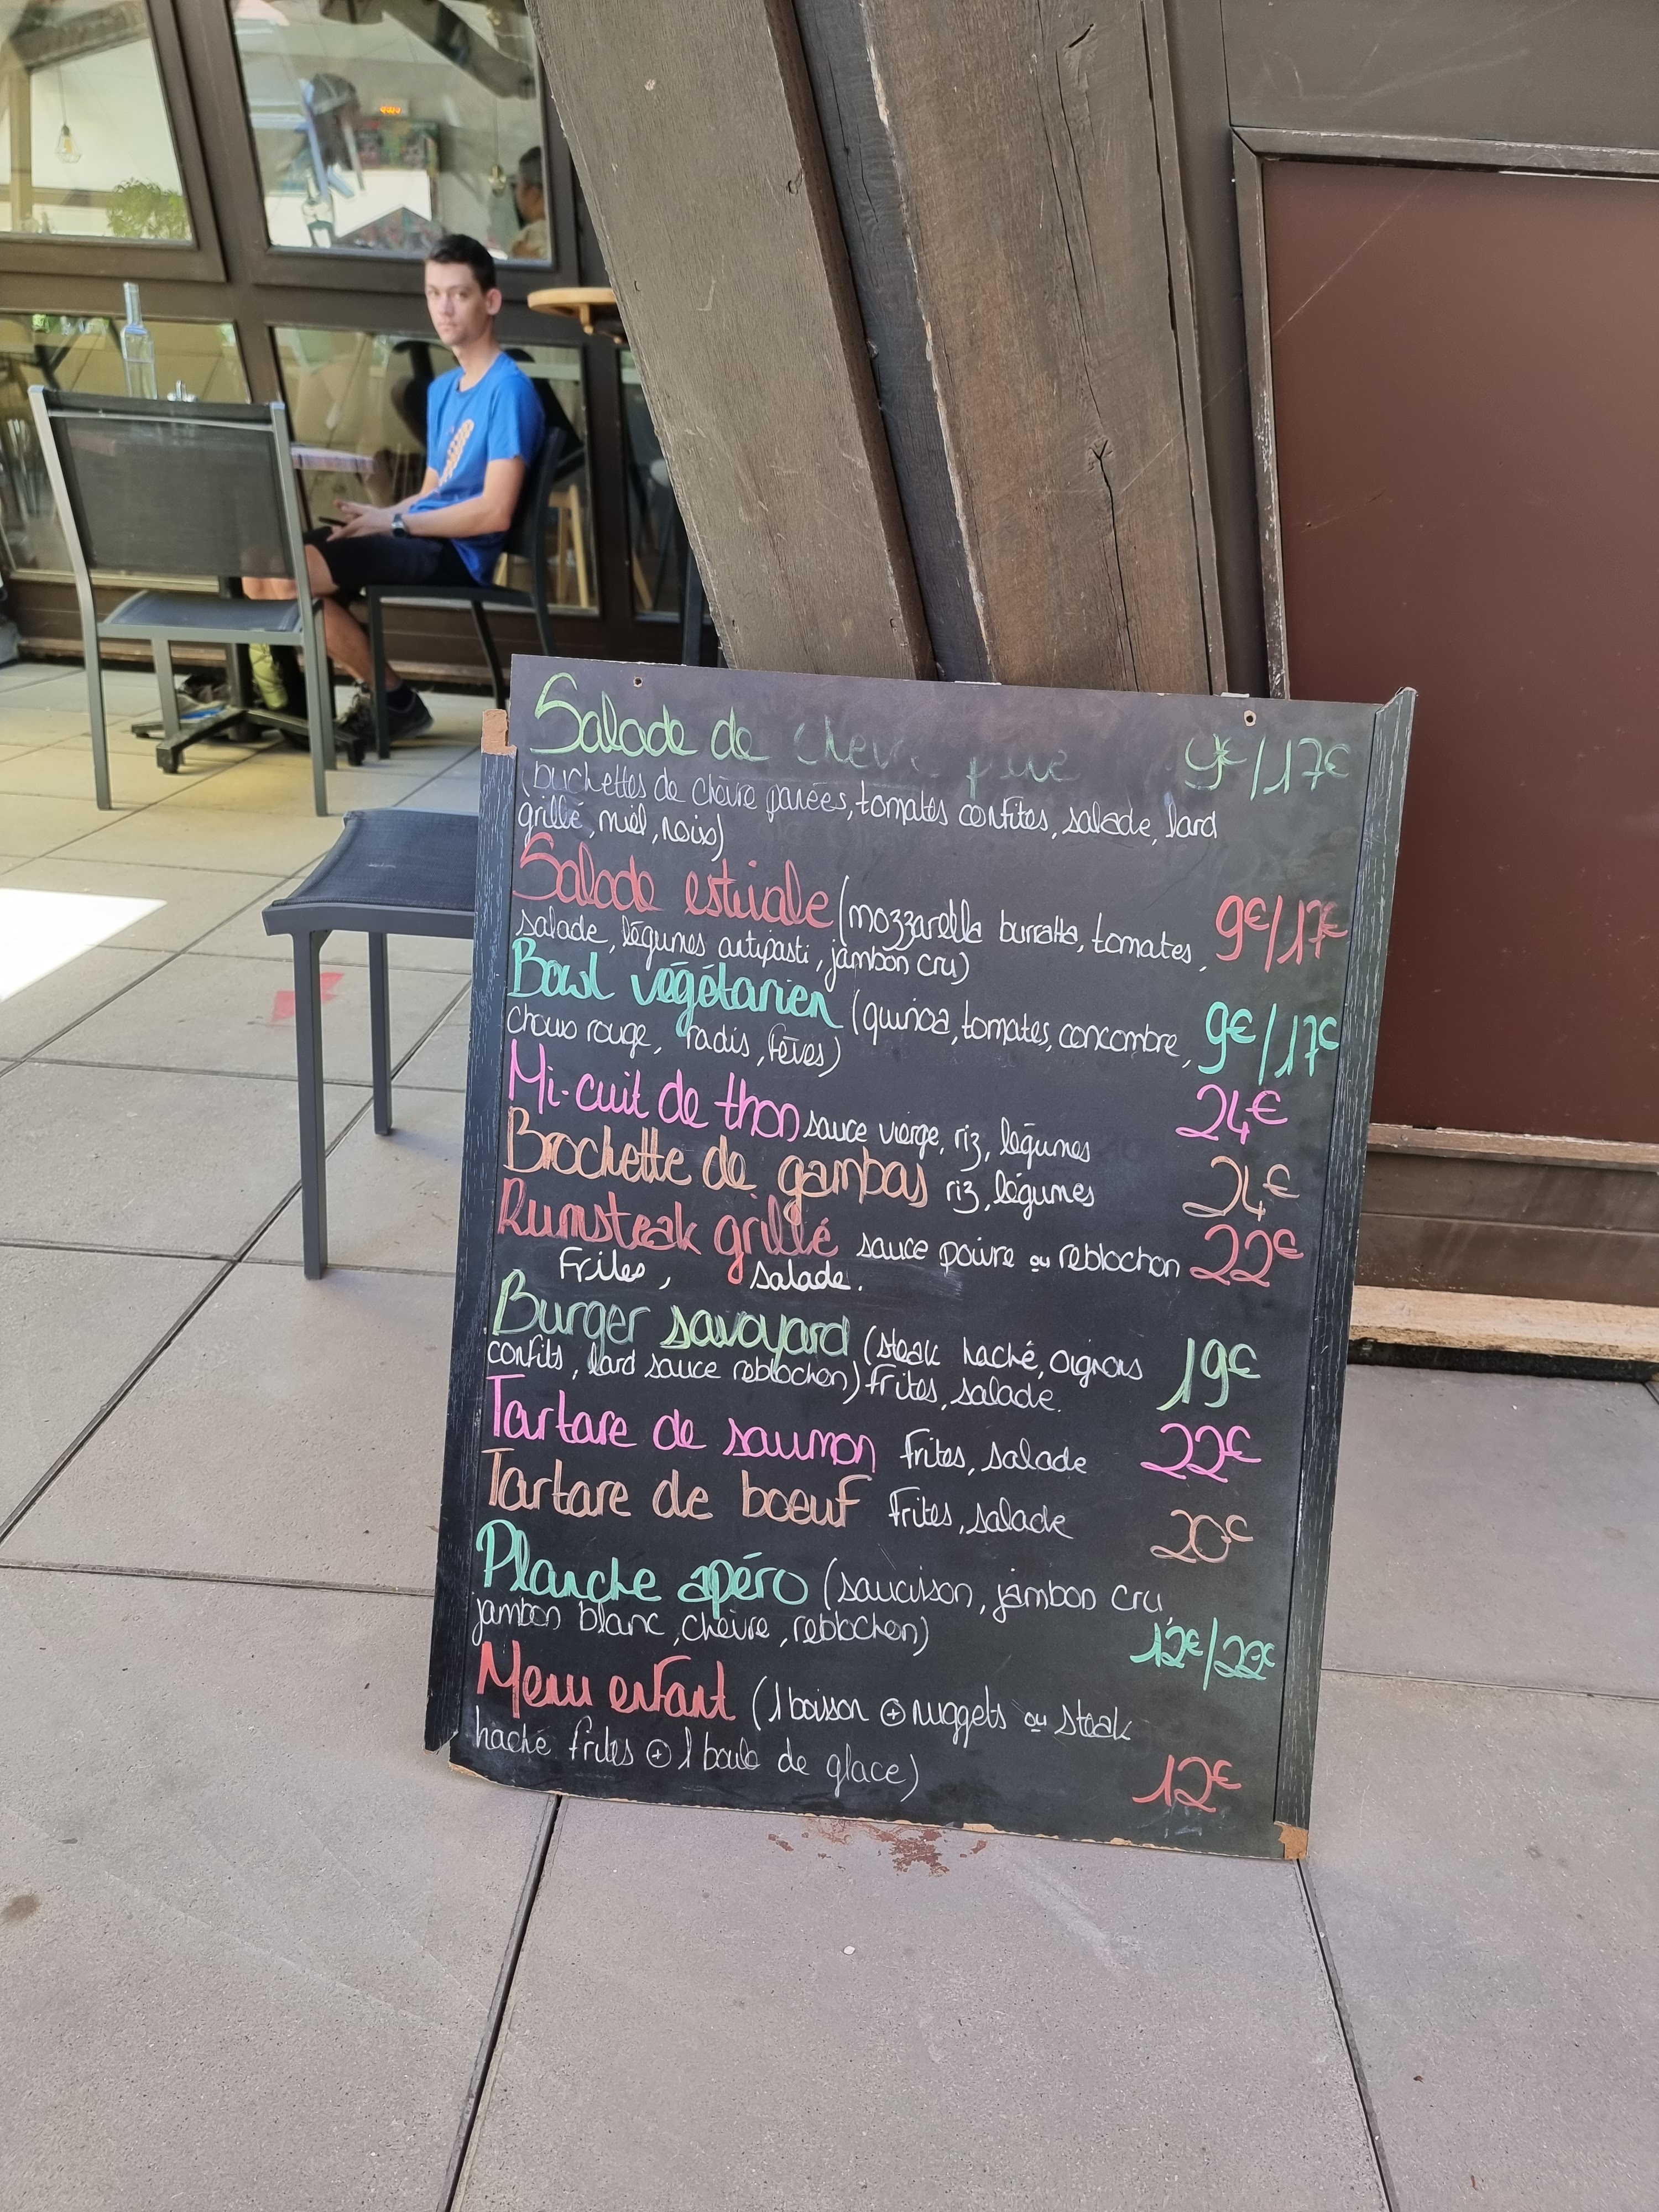 Salade de chèvre pané 9€/17€
(buchettes de chèvre panées, tomates confites, salade, lard
grillé, miel, noix)
Salade estivale (mozzarella burratta, tomates, 9€/17€
salade, légumes antipasti, jambon cru)
Bowl végétarien (quinoa, tomates, concombre, 9€/17€
choux rouge, radis, fèves)
Mi-cuit de thon sauce vierge, riz, légumes 24€
Brochette de gambas riz, légumes 24€
Rumsteak grillé sauce poivre ou reblochon 22€
Frites, salade.
Burger savoyard (steak haché, oignons 19€
confits, lard sauce reblochon) frites, salade.
Tartare de saumon frites, salade 22€
Tartare de boeuf frites, salade 20€
Planche apéro (saucisson, jambon cru,
jambon blanc, chèvre, reblochon) 12€/22€
Menu enfant (1 boisson + nuggets ou steak
haché frites + 1 boule de glace) 12€